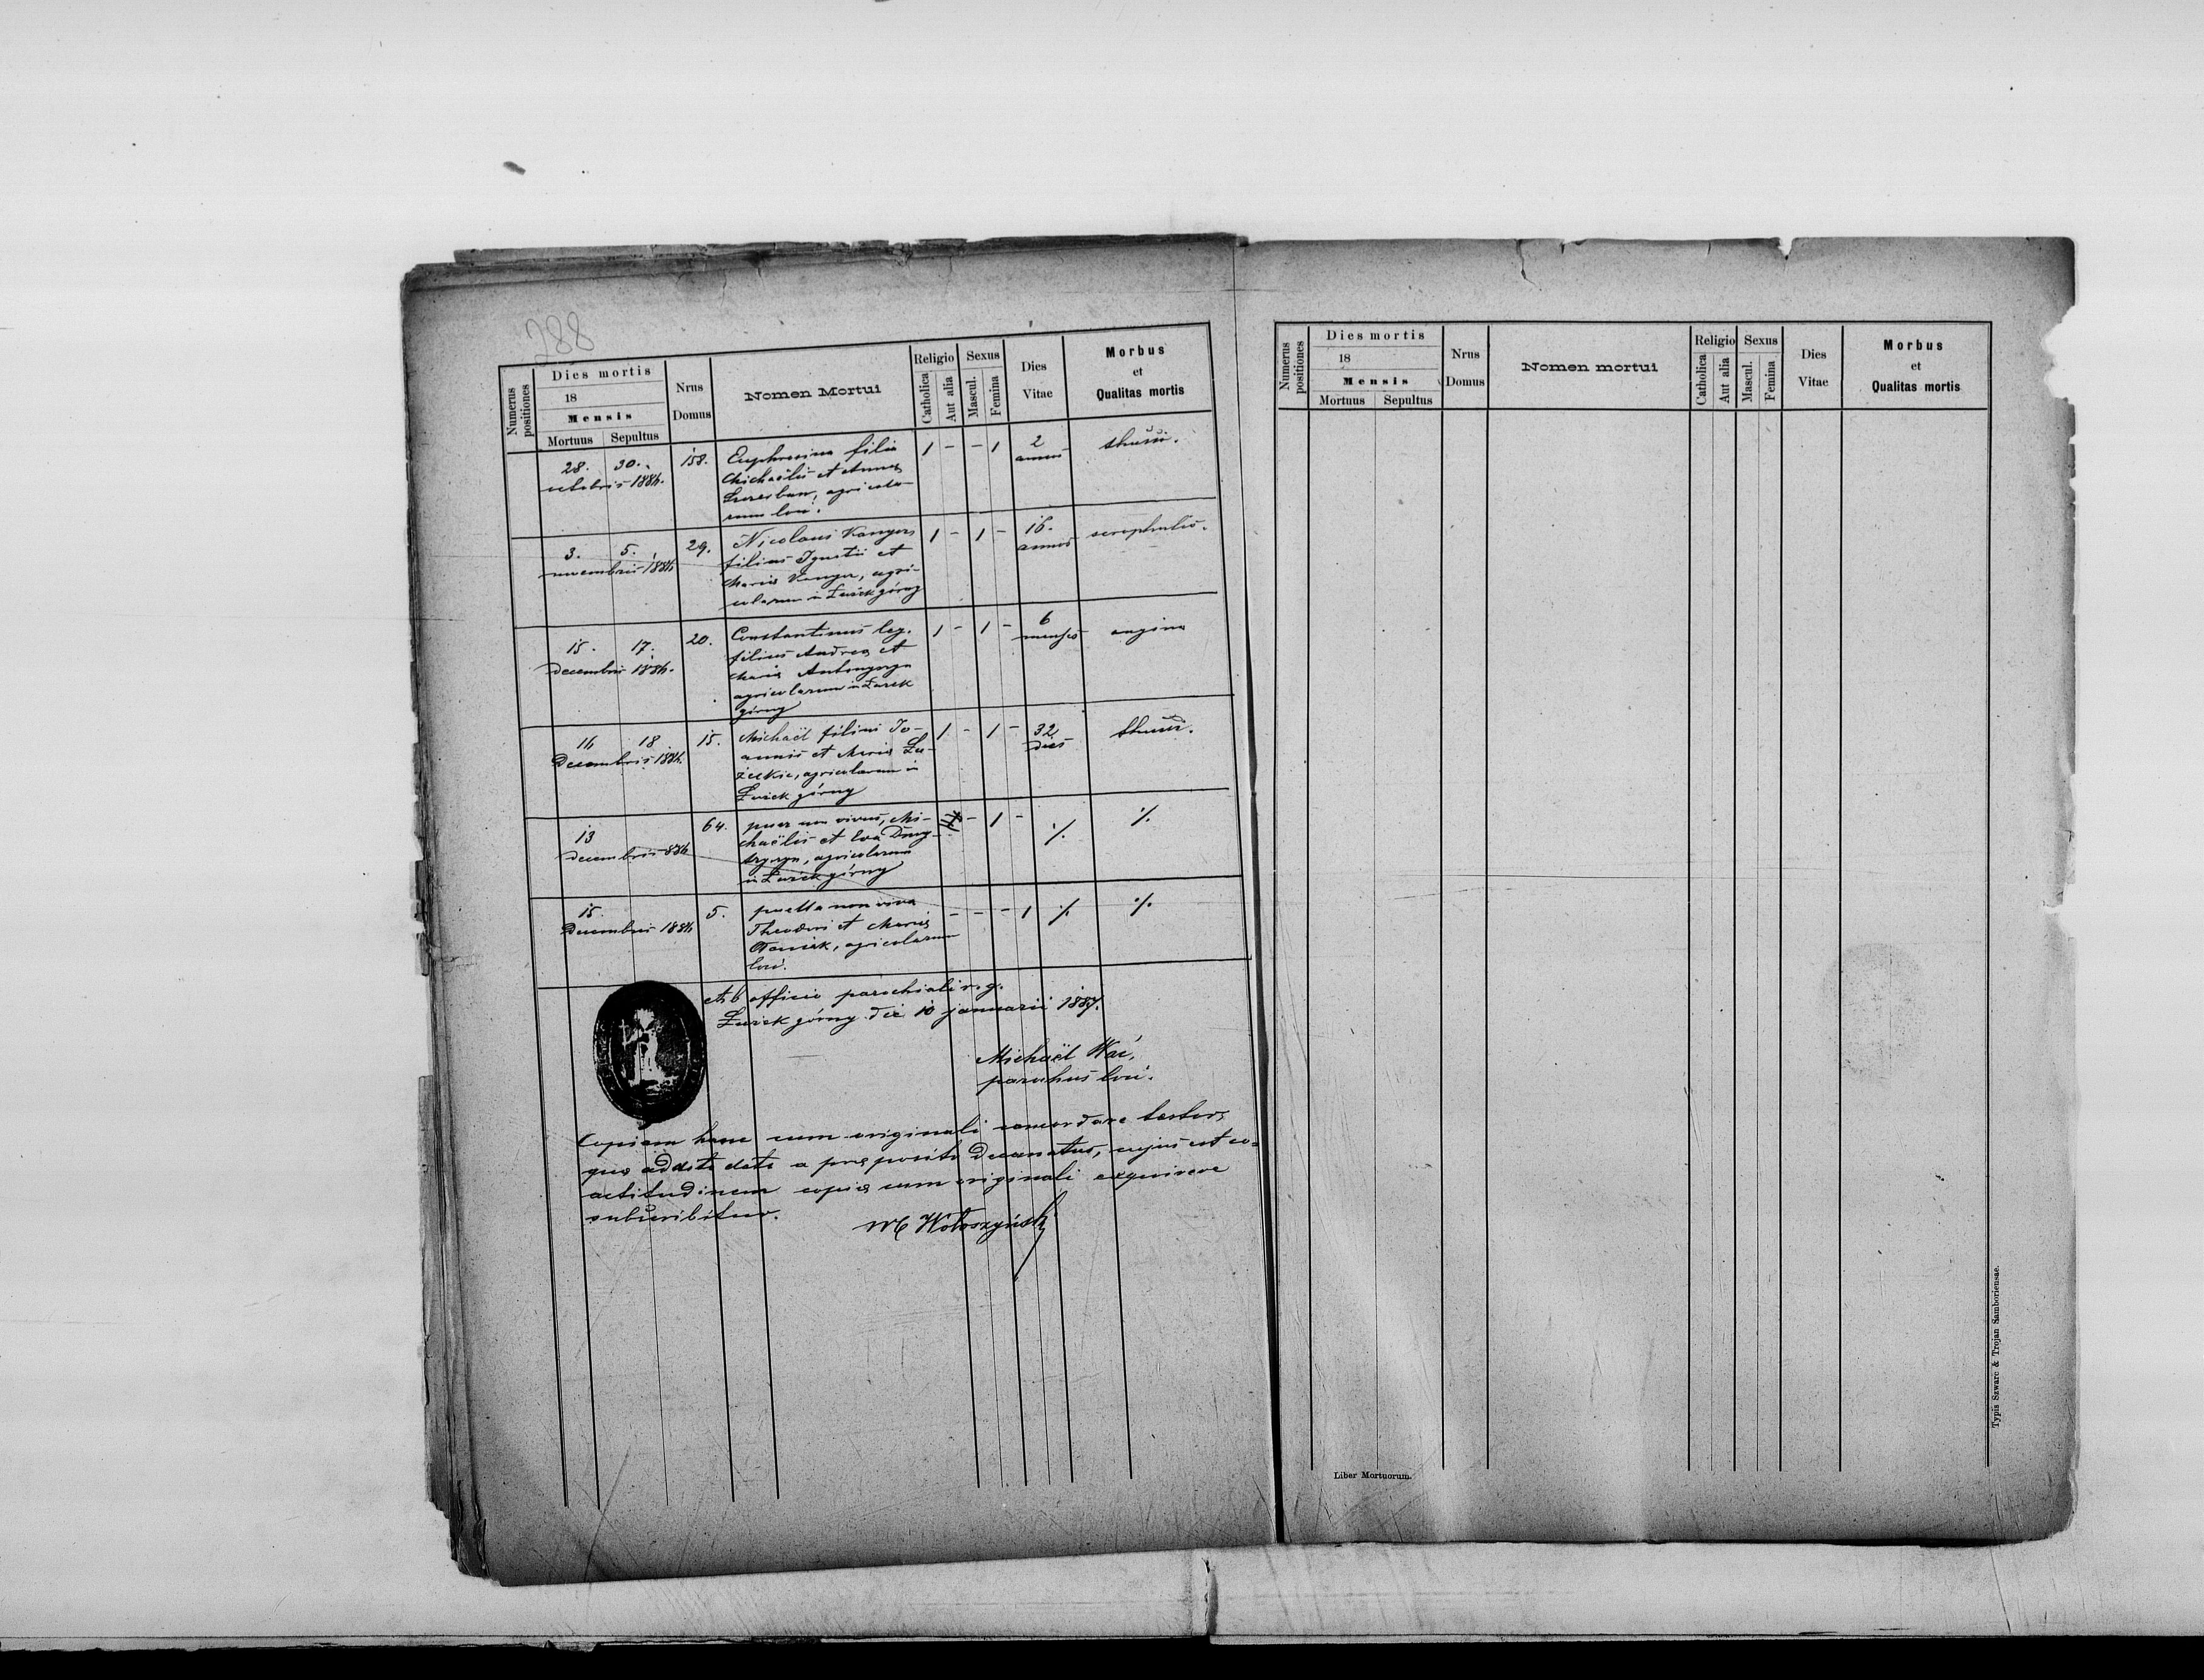 288
Numerus positiones
Dies mortis
18
Mensis
Mortuus Sepultus
Nrus Domus
Nomen Mortui
Religio
Catholica
Aut alia
Sexus
Mascul.
Femina
Dies Vitae
Morbus et Qualitas mortis
28. 30. 158. Euphrosina filia 1 - - 1 2
octobris 1886. Michaëlis et Annæ annos
agricola-
rum loci.
3. 5. 29. Nicolaus 1 - 1 - 16.
novembris 1886 filius Ignatii et annos
Mariæ agri-
colarum in Łużek górny
15. 17. 20. Constantinus leg. 1 - 1 - 6 angina
decembris 1886. filius Andreæ et menses
Mariæ
agricolarum in Łużek
górny
16 18 15. Michaël filius Jo- 1 - 1 - 32
Decembris 1886. annis et Mariæ Łu- dies
żeckie, agricolarum in
Łużek górny
13 64. puer non vivus, Mi- - 1 - ./. ./.
decembris 886 chaëlis et Eva Dmy-
agricolarum
in Łużek górny
15. 5. puella non viva - - - 1 ./. ./.
Decembris 1886 Theodori et Mariæ
agricolarum
loci.
Ab officio parochiali r. g.
Łużek górny die 10 januarii 1887.
Michaël
parochus loci.
Copiam hanc cum originali concordare testor,
quæ addita a præposito Decanatus, cujus est co-
copiæ cum originali exquirere
subscribitur.
M Wołoszyński
Numerus positiones
Dies mortis
18
Mensis
Mortuus Sepultus
Nrus Domus
Nomen mortui
Religio
Catholica
Aut alia
Sexus
Mascul.
Femina
Dies Vitae
Morbus et Qualitas mortis
Liber Mortuorum.
Typis Szwarc & Trojan Samboriensae.